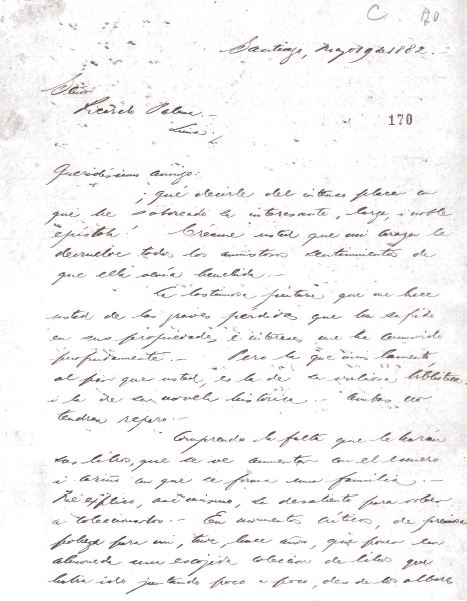 C. 170
Santiago, mayo 9 de 1882.-
Señor
Ricardo Palma.-
Lima.
170
Queridísimo amigo:
¡qué decirle del intenso placer con
que he saboreado la interesante, larga i noble
epístola! Créame usted que mi corazon le
devuelve todos los amistosos sentimientos de
que ella venía henchida.-
La lastimosa pintura que me hace
usted de las graves pérdidas que ha sufrido
en sus propiedades, e intereses me ha conmovido
profundamente.- Pero la que mas lamento
al par que usted, es la de su valiosa biblioteca
i la de su novela histórica.- Ambas no
tendran reparo.-
Comprendo la falta que le harán
sus libros, que se ve aumentar con el esmero
i cariño con que se forma una familia.-
Me esplico, asi mismo, su desaliento para volver
a coleccionarlos.- En momentos críticos, de
pobreza para mi, tuve, hace años, que poner en
almoneda una escojida coleccion de libros que
habia ido juntando poco a poco, desde los